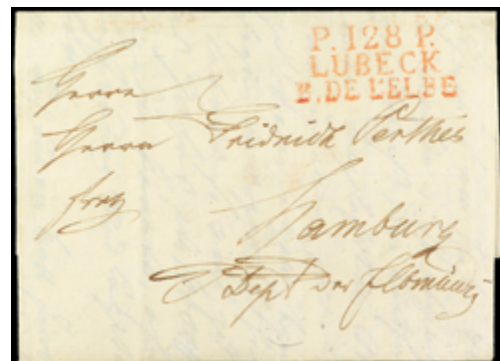 P. 128 P.
LUBECK
B. DE L'ELBE
Herrn
Herrn Fridrich Perthes
frey
Hamburg
Dept der Elbmündg